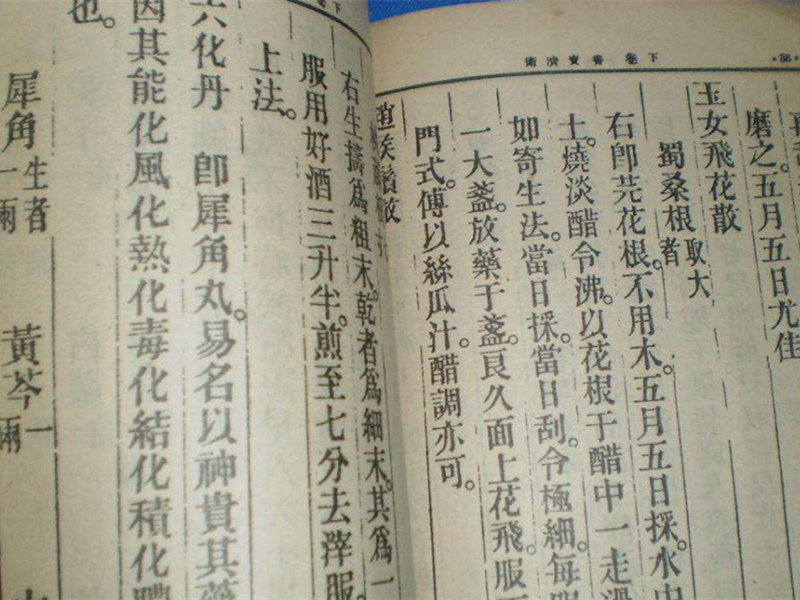 衛濟寶書 卷下
磨之。五月五日尤佳
玉女飛花散
蜀桑根取大者
右卽芫花根。不用木。五月五日採。水中
土。燒淡醋令沸。以花根于醋中一走過
如寄生法。當日採。當日刮。令極細。每服
一大盞。放藥于盞。良久面上花飛。服
門式。傅以絲瓜汁。醋調亦可。
趙侯鬚散
右生擣爲粗末。乾者爲細末。其爲一
服用好酒三升半。煎至七分去滓服。
上法。
六化丹 卽犀角丸。易名以神貴其藥
因其能化風化熱化毒化結化積化
也。
犀角生者一兩 黃芩一兩